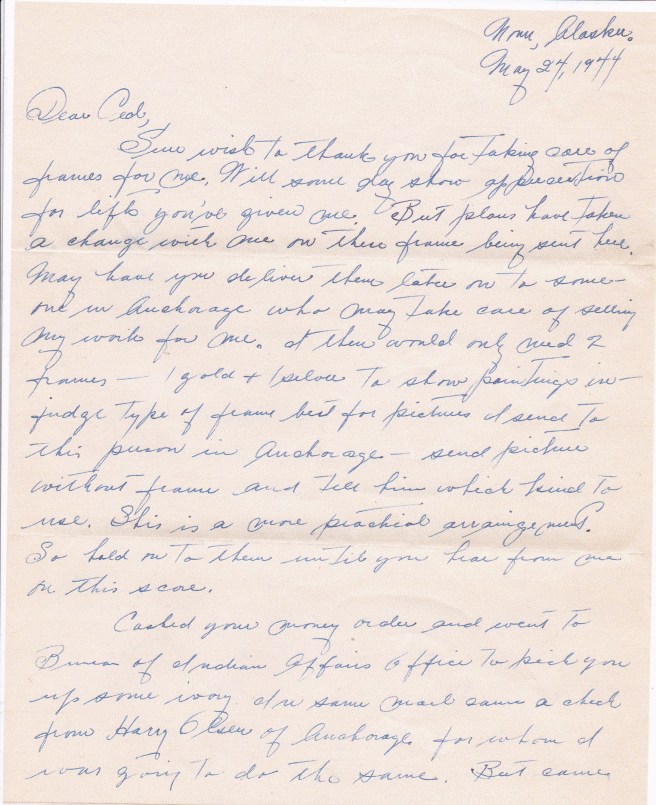 Nome, Alaska.
May 24, 1944
Dear Ced,
Sure wish to thank you for taking care of
frames for me. Will some day show appreciation
for lifts you've given me. But plans have taken
a change with me on these frame being sent here.
May have you deliver them later on to some-
one in Anchorage who may take care of selling
my work for me. I then would only need 2
frames — 1 gold + 1 silver to show paintings in —
judge type of frame best for pictures I send to
this person in Anchorage — send picture
without frame and tell him which kind to
use. This is a more practical arrangement.
So hold on to them until you hear from me
on this score.
Cashed your money order and went to
Bureau of Indian Affairs Office to pick you
up some ivory. In same mail came a check
from Harry Olsen of Anchorage for whom I
was going to do the same. But came